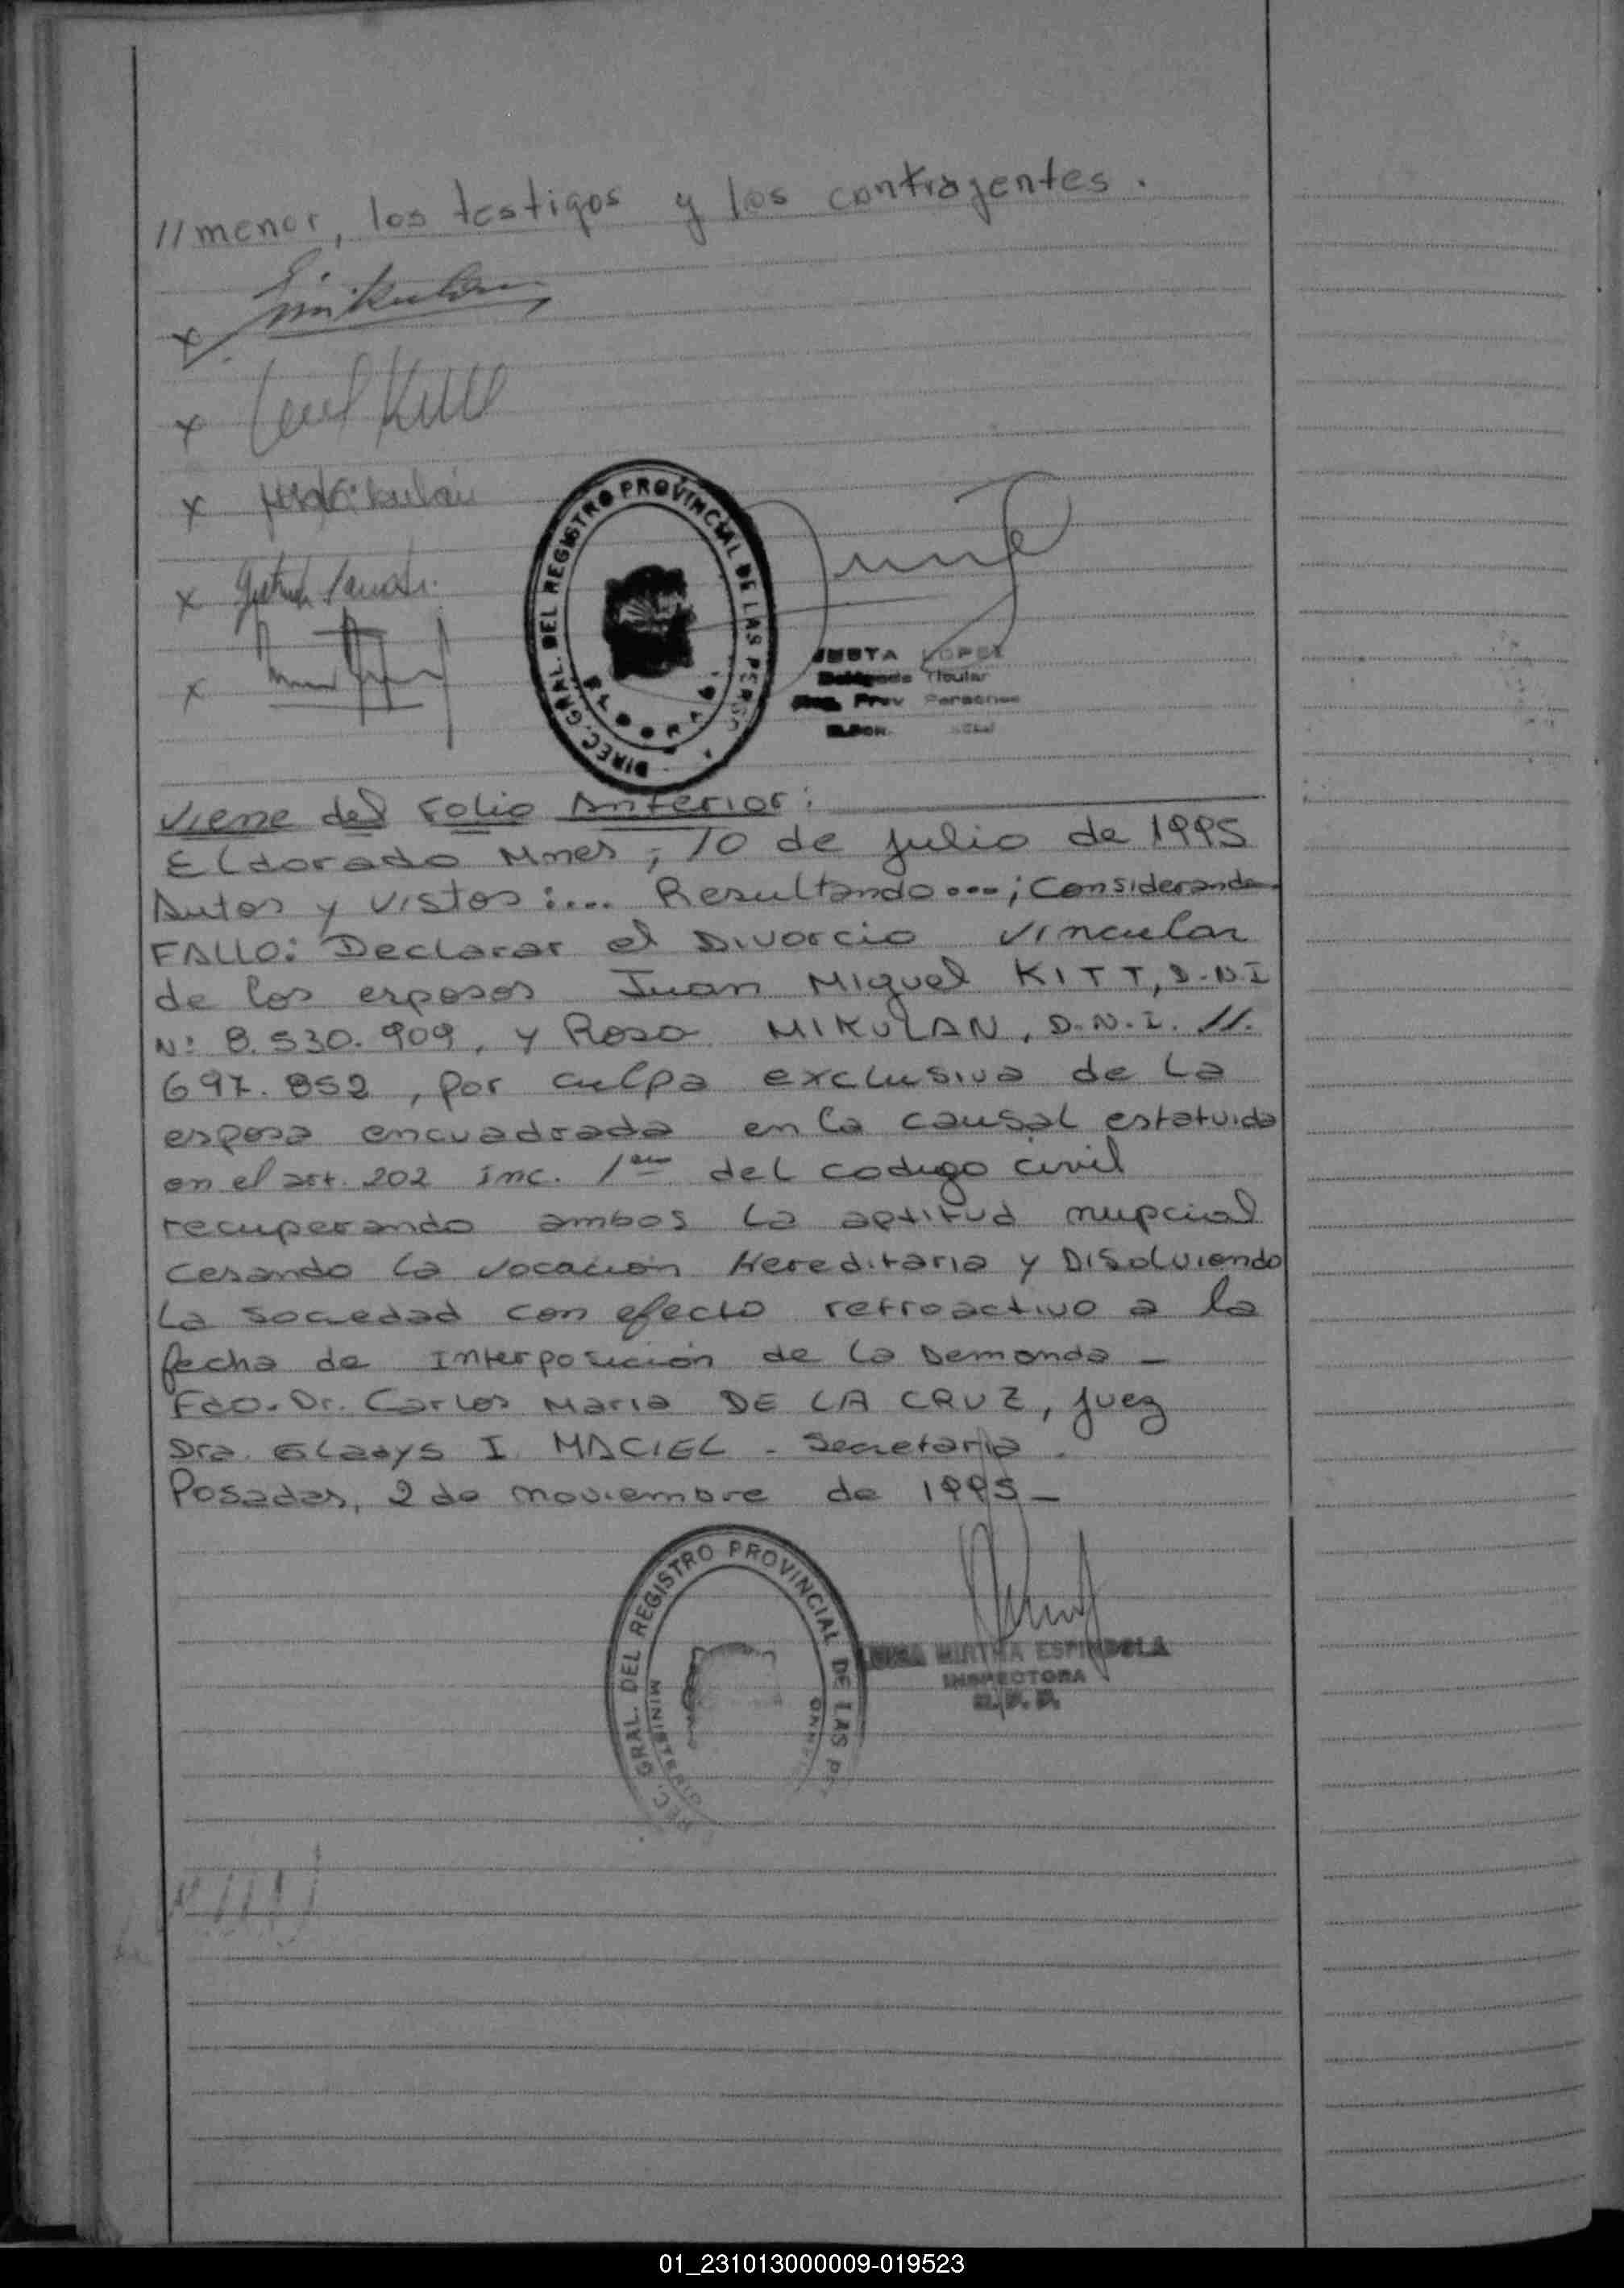 //menor, los testigos y los contrayentes.
x
x
x
x
x
DIREC. GRAL. DEL REGISTRO PROVINCIAL DE LAS PERSO
ELDORADO
LOPEZ
Titular
Prov Personas
Viene del Folio Anterior:
Eldorado Mnes, 10 de Julio de 1995
Autos y vistos:.... Resultando...; Considerando
FALLO: Declarar el Divorcio Vincular
de los esposos Juan Miguel KITT, D.N.I
N: 8.530.909, y Rosa MIKULAN, D.N.I. 11.
697.852, por culpa exclusiva de la
esposa encuadrada en la causal estatuida
en el art. 202 inc. 1ero del codigo civil
recuperando ambos la aptitud nupcial
cesando la vocación Hereditaria y Disolviendo
la sociedad con efecto retroactivo a la
fecha de Interposición de la Demanda -
Fdo. Dr. Carlos Maria DE LA CRUZ, juez
Dra. Gladys I. MACIEL - Secretaria.
Posadas, 2 de noviembre de 1995-
DIREC. GRAL. DEL REGISTRO PROVINCIAL DE LAS P
MINISTERIO
MIRTHA ESPINDOLA
INSPECTORA
R.P.P.
01_231013000009-019523